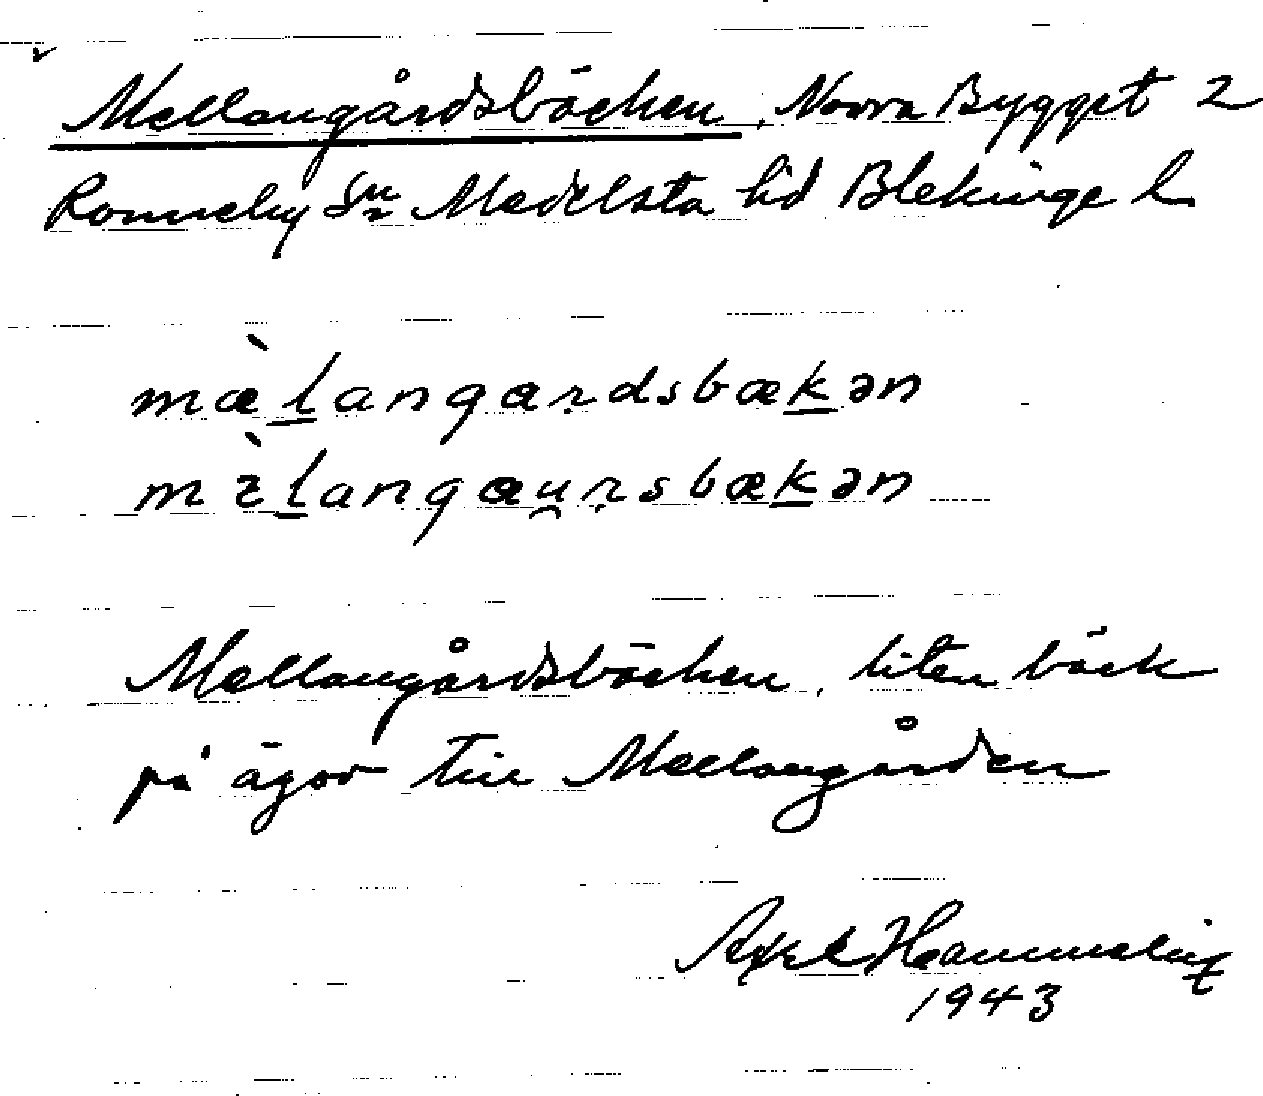 Mellangårdsbäcken, Norra Bygget 2
Ronneby Sn Medelsta hd Blekinge l
mæ̀l̲angɑṛdsbæk̲ən
l̲angɑu̯ṛsbæk̲ən
Mellangårdsbäcken, liten bäck
på ägor till Mellangården
Axel
1943